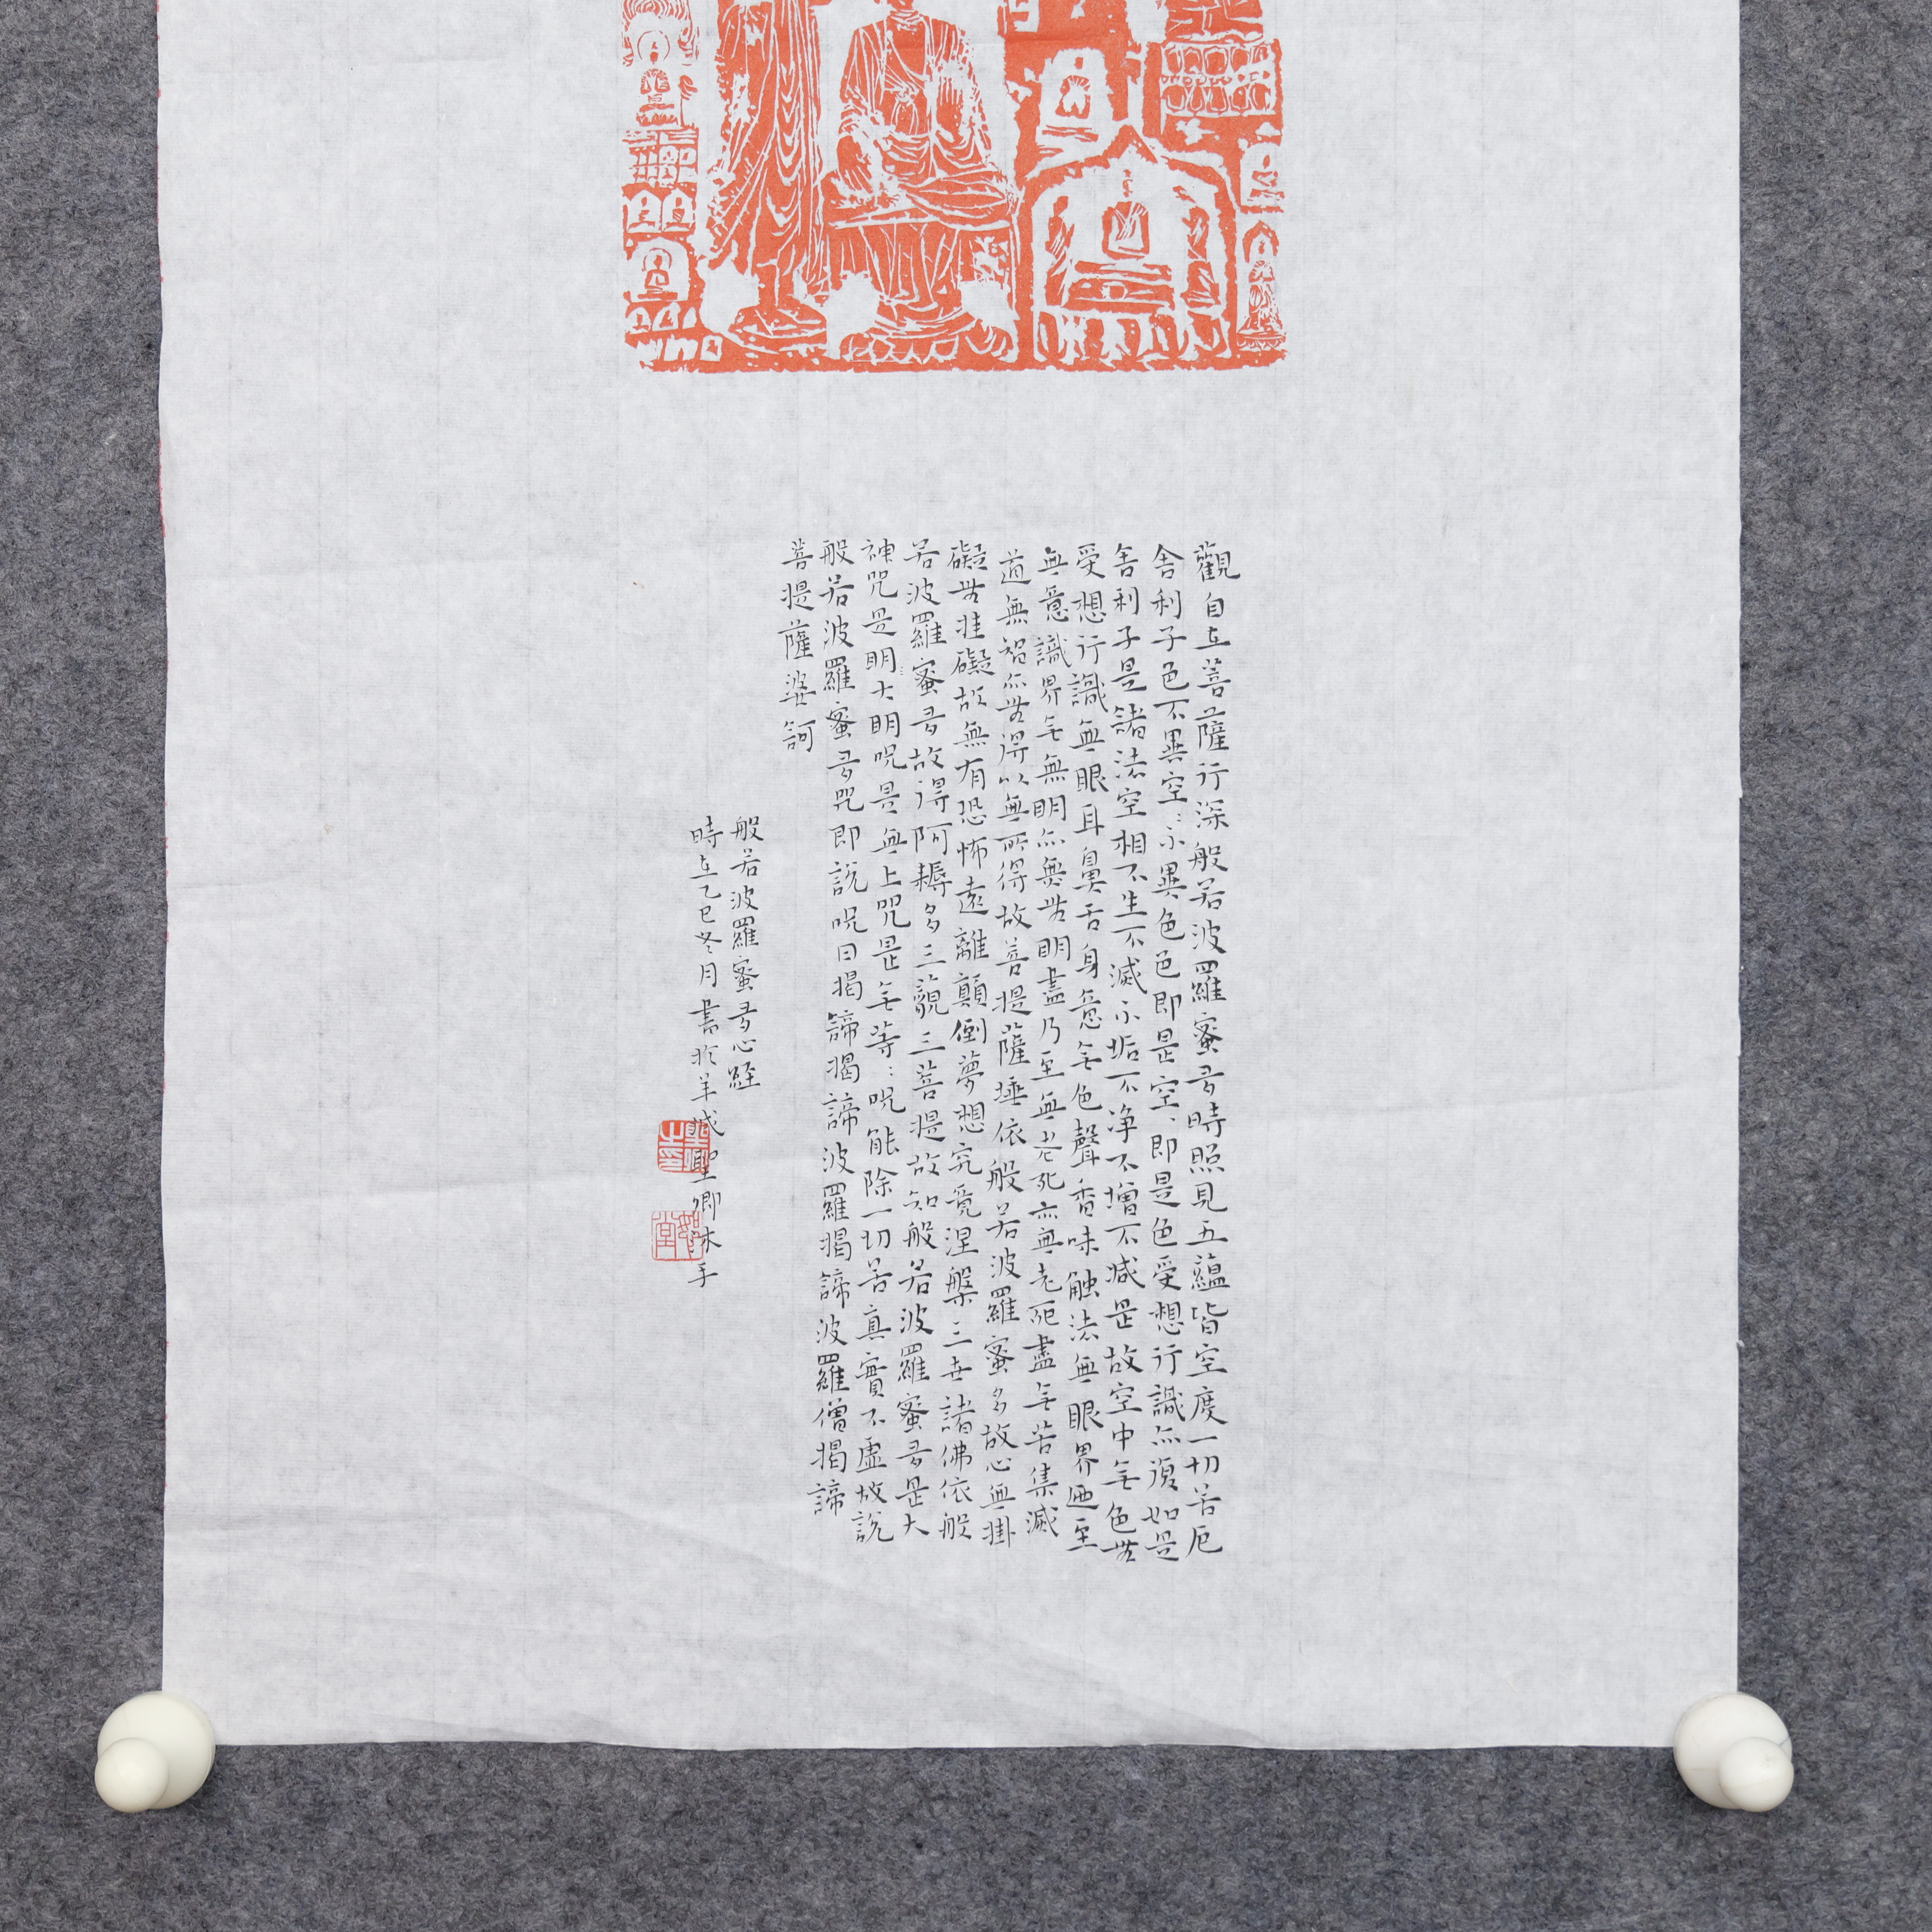 觀自在菩薩行深般若波羅蜜多時照見五蘊皆空度一切苦厄
舍利子色不異空〻不異色色即是空、即是色受想行識亦復如是
舍利子是諸法空相不生不滅不垢不净不增不减是故空中无色無
受想行識無眼耳鼻舌身意无色聲香味触法無眼界迺至
無意識界无無明亦無無明盡乃至無老死亦無老死盡无苦集滅
道無智亦無得以無所得故菩提薩埵依般若波羅蜜多故心無掛
礙無挂礙故無有恐怖遠離顛倒夢想究竟涅槃三世諸佛依般
若波羅蜜多故得阿耨多三藐三菩提故知般若波羅蜜多是大
神咒是明大明呪是無上咒是无等〻呪能除一切苦真實不虛故說
般若波羅蜜多咒即說呪曰揭諦揭諦波羅揭諦波羅僧揭諦
菩提薩婆訶
般若波羅蜜多心經
時在乙巳冬月書於羊城聖卿沐手